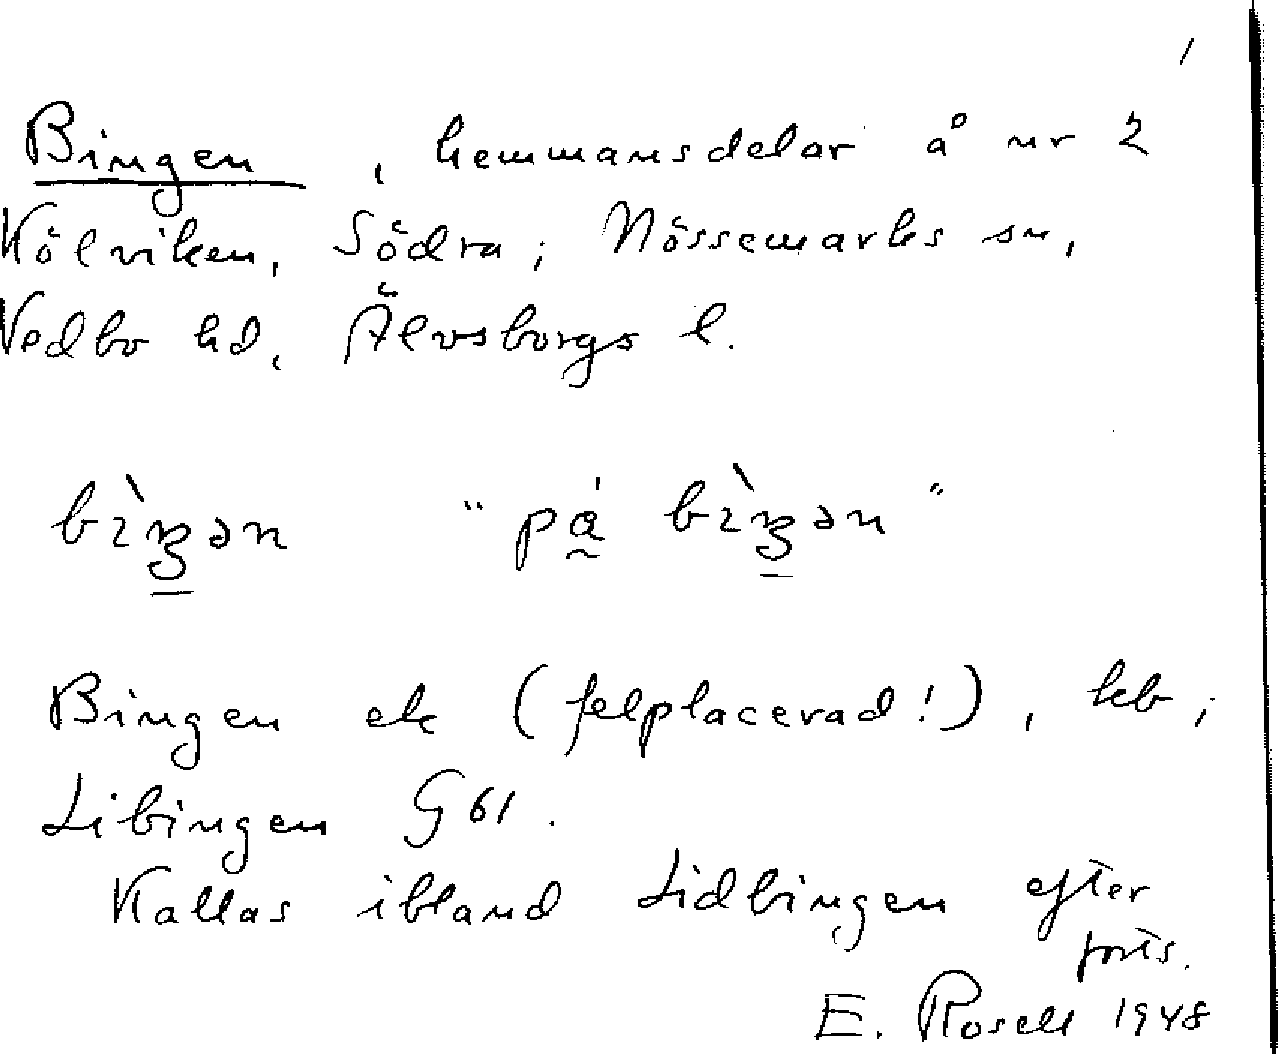 1
Bingen, hemmansdelar å nr 2
Kölviken, Södra; Nössemarks sn,
Vedbo hd, Älvsborgs l.
bɪ̀ŋən "på bɪ̀ŋən"
Bingen ek (felplacerad!), hb;
Libingen G 61.
Kallas ibland Lidbingen efter
forts.
E. Rosell 1948